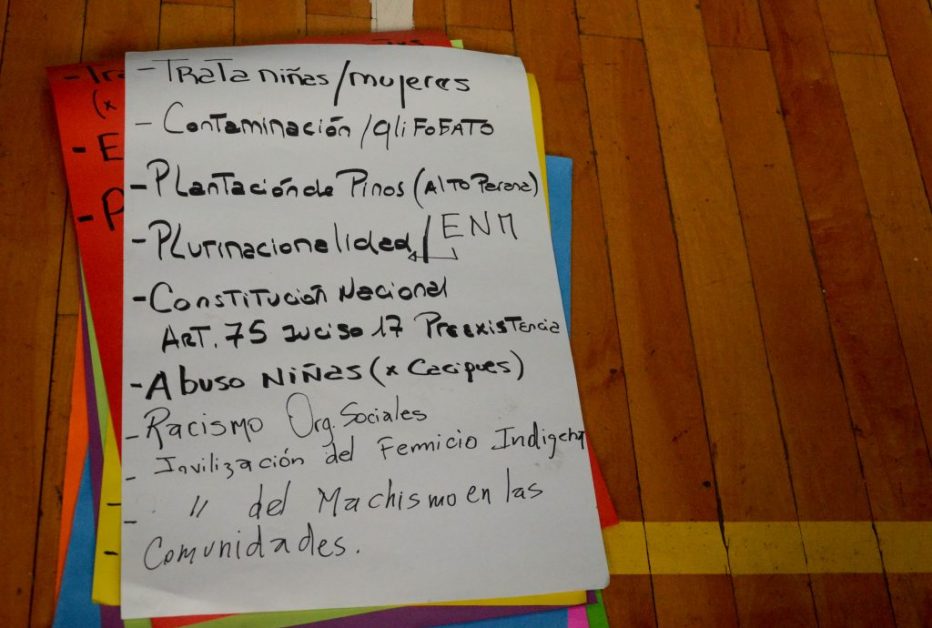 - Trata niñas/mujeres
- Contaminación/gliFOFATO
- PLantación de Pinos (ALTO Parana)
- PLurinacionalidad/ENM
- Constitución Nacional
ART. 75 Inciso 17 Preexistencia
- Abuso Niñas (x Caciques)
- Racismo Org. Sociales
- Invilización del Femicio Indigena
- " del Machismo en las
Comunidades.
- Tra
(x
- E
- P